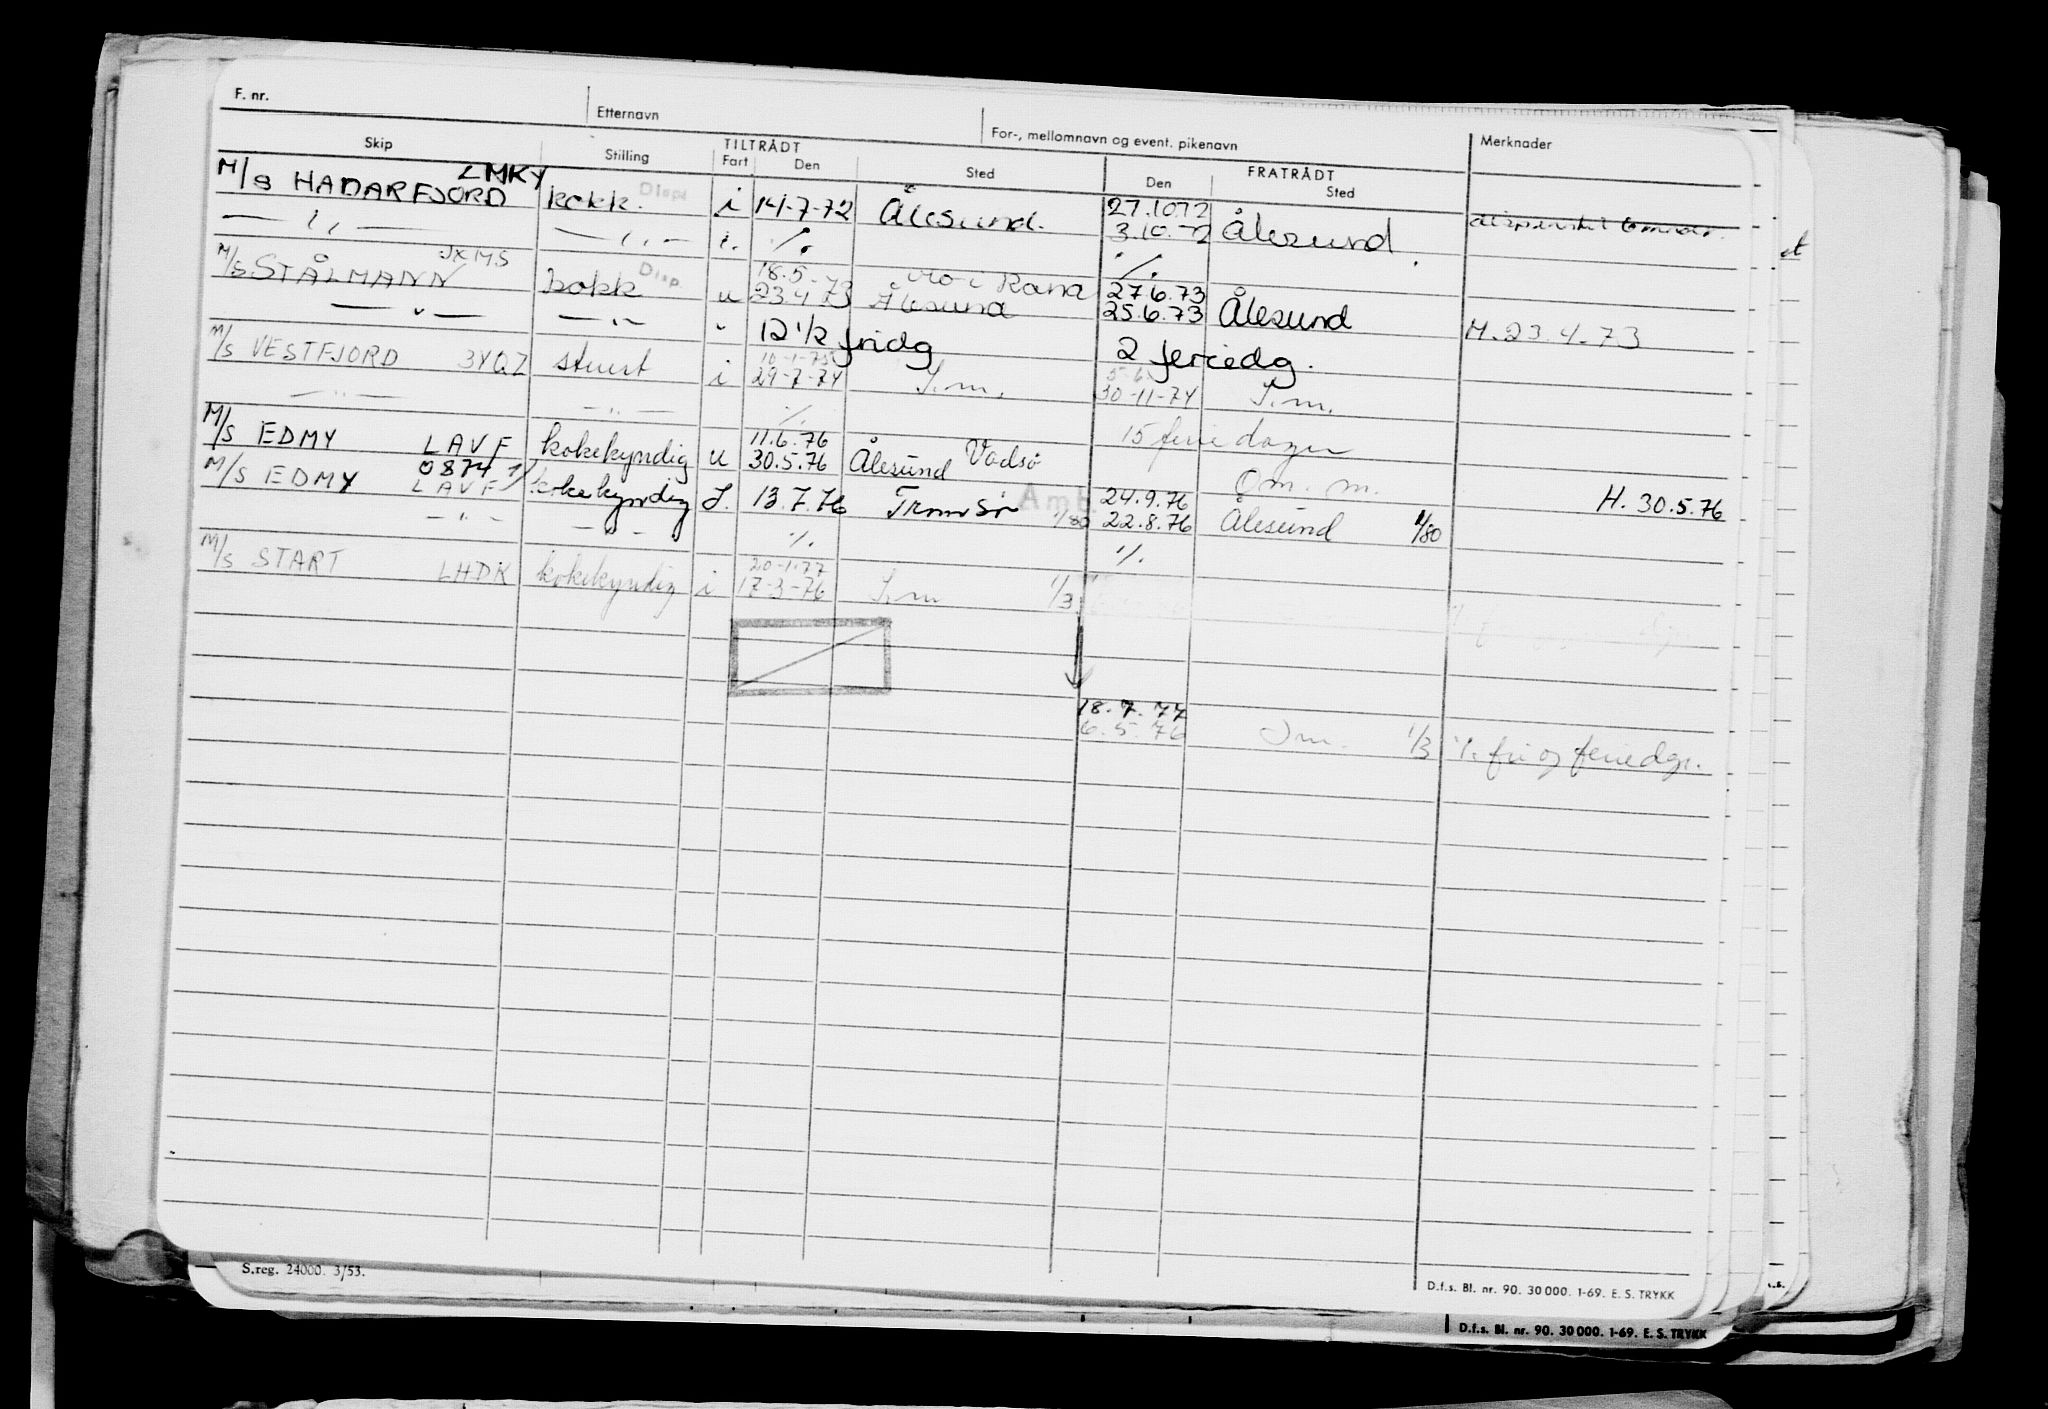 F. nr. Etternavn For-, mellomnavn og event. pikenavn
Skip Stilling TILTRÅDT Fart Den Sted FRATRÅDT Den Sted Merknader
M/s HADARFJORD LMKY kokk. Disp i 14-7-72 Ålesund. 27.10.72
— " — — " — i. ·/. 3.10.72 Ålesund
M/s. STÅLMANN JXMS kokk Disp u 18.5.73 Mo i Rana ·/. 27.6.73
23.4.73 Ålesund
— " — — " — " 12 1/2 fridg 25.6.73 Ålesund M. 23.4.73
M/s VESTFJORD 3YQZ stuert i 10-1-75 2 feriedg.
29-7-74 S.m. 30-11-74 S.m.
— " — — " — ·/. 15 feriedager
M/s EDMY LAVF kokekyndig u 11.6.76 Vadsø
30.5.76 Ålesund Om. m. H. 30.5.76
M/S EDMY 0874 LAVF kokekyndig J. 13.7.76 Tromsø 1/80 24.9.76
22.8.76 Ålesund 1/80
— " — — " — ·/. ·/.
M/s START LHDK kokekyndig i 20-1-77
17-3-76 S.m 1/3
18.7.77
6.5.76 Sm. 1/3 ·/. fri og feriedgr.
S.reg. 24000. 3/53. D.f.s. Bl. nr. 90. 30 000. 1-69. E. S. TRYKK
D.f.s. Bl. nr. 90. 30 000. 1-69. E. S. TRYKK